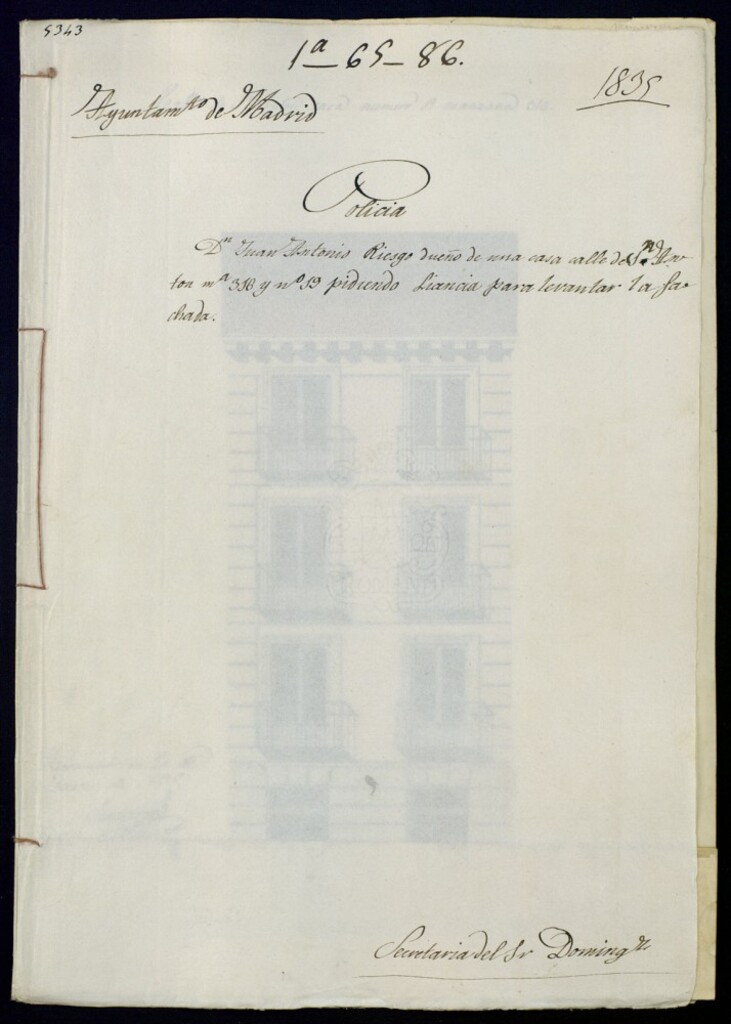 5343
1ª 65-86.
1835
Ayuntamto de Madrid
Policia
Dn Juan Antonio Riesgo dueño de una casa calle de Sn An-
ton mª 358 y nº 19 pidiendo Licencia para levantar la fa-
chada.
Secretaria del Sr Domingz